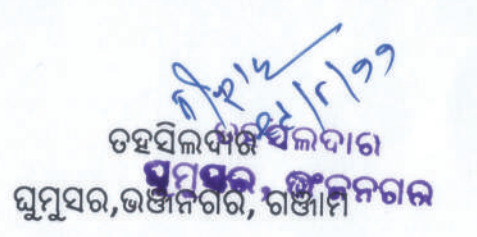 ତହସିଲଦାର
ତହସିଲଦାର
ଘୁମୁସର, ଭଂଜନଗର
ଘୁମୁସର,ଭଞ୍ଜନଗର, ଗଞ୍ଜାମ